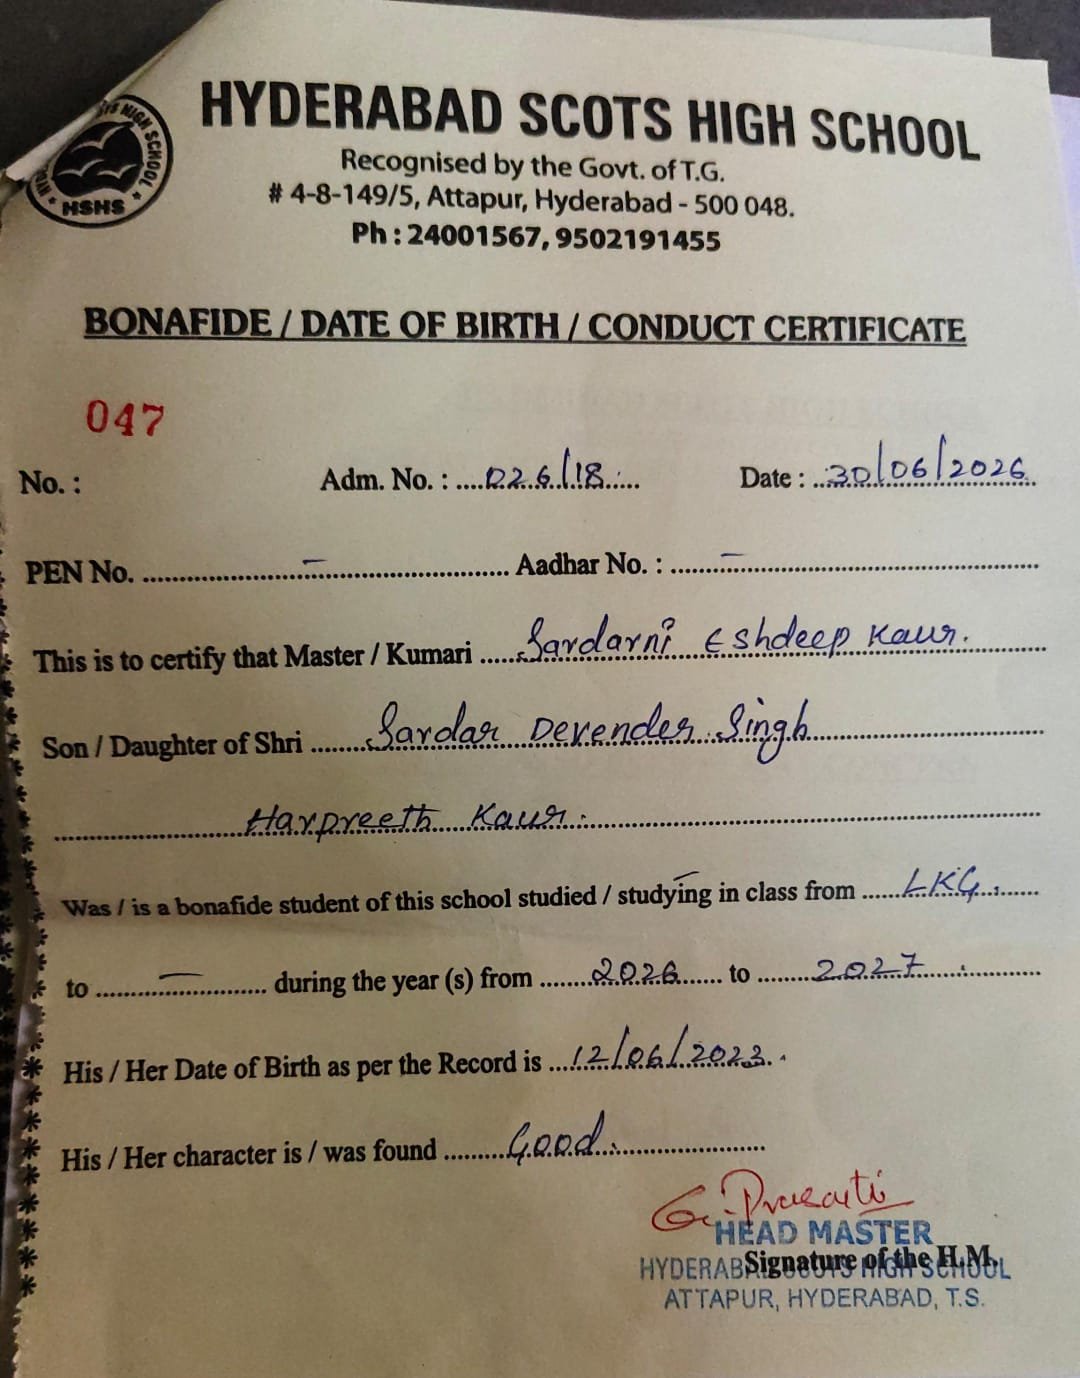 HYDERABAD SCOTS HIGH SCHOOL
Recognised by the Govt. of T.G.
# 4-8-149/5, Attapur, Hyderabad - 500 048.
Ph : 24001567, 9502191455
HIGH SCHOOL
HSHS
BONAFIDE / DATE OF BIRTH / CONDUCT CERTIFICATE
047
No. : Adm. No. : 026/18. Date : 30/06/2026
PEN No. – Aadhar No. : –
This is to certify that Master / Kumari Sardarni Eshdeep Kaur.
Son / Daughter of Shri Sardar Devender Singh
Harpreeth Kaur.
Was / is a bonafide student of this school studied / studying in class from LKG.
to – during the year (s) from 2026 to 2027.
His / Her Date of Birth as per the Record is 12/06/2023.
His / Her character is / was found Good.
HEAD MASTER
Signature of the H.M.
HYDERABAD SCOTS HIGH SCHOOL
ATTAPUR, HYDERABAD, T.S.